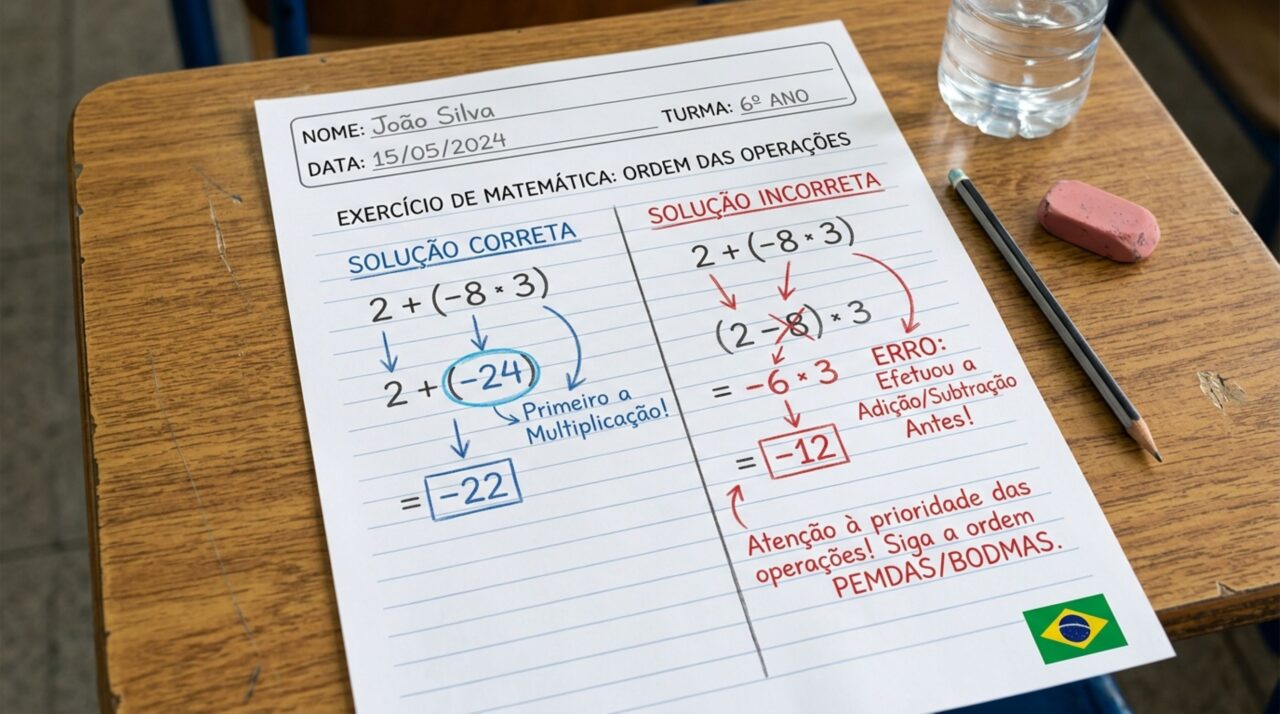 NOME: João Silva
DATA: 15/05/2024
TURMA: 6º ANO
EXERCÍCIO DE MATEMÁTICA: ORDEM DAS OPERAÇÕES
SOLUÇÃO CORRETA
2 + (-8 × 3)
2 + (-24)
Primeiro a
Multiplicação!
= -22
SOLUÇÃO INCORRETA
2 + (-8 × 3)
(2 - 8) × 3
= -6 × 3
ERRO:
Efetuou a
Adição/Subtração
Antes!
= -12
Atenção à prioridade das
operações! Siga a ordem
PEMDAS/BODMAS.